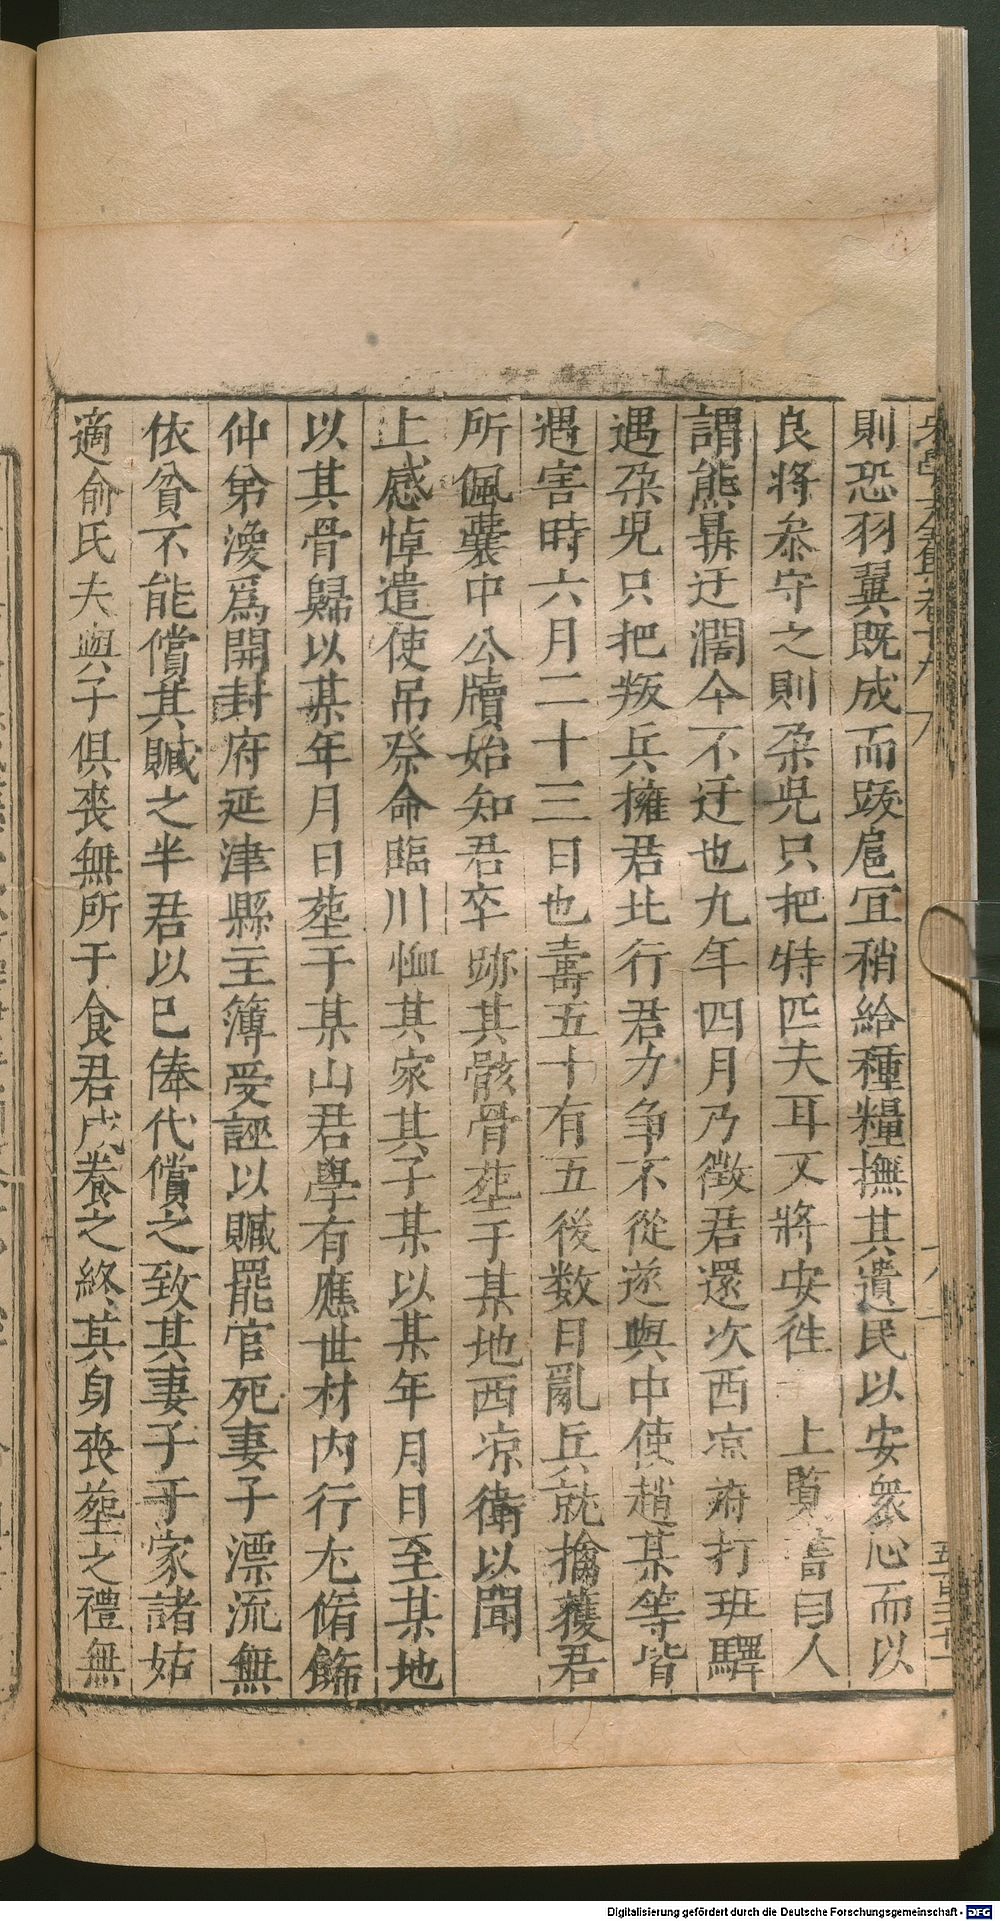 則恐羽翼既成而跋扈宜稍給種糧撫其遺民以安衆心而以
良將叅守之則朶兒只把特匹夫耳又將安徃 上覽書自人
謂熊鼎迂濶今不迂也九年四月乃徵君還次西凉府打班驛
遇朶兒只把叛兵擁君北行君力争不從遂與中使趙某等皆
遇害時六月二十三日也壽五十有五後数日亂兵就擒獲君
所佩囊中公牘始知君卒跡其骸骨塟于某地西凉衛以聞
上感悼遣使吊祭命臨川恤其家其子某以某年月日至某地
以其骨歸以某年月日塟于某山君學有應世材内行尤脩飾
仲弟漫爲開封府延津縣主簿受誣以贓罷官死妻子漂流無
依貧不能償其贓之半君以巳俸代償之致其妻子于家諸姑
適俞氏夫與子俱喪無所于食君成養之終其身喪塟之禮無
Digitalisierung gefördert durch die Deutsche Forschungsgemeinschaft - DFG